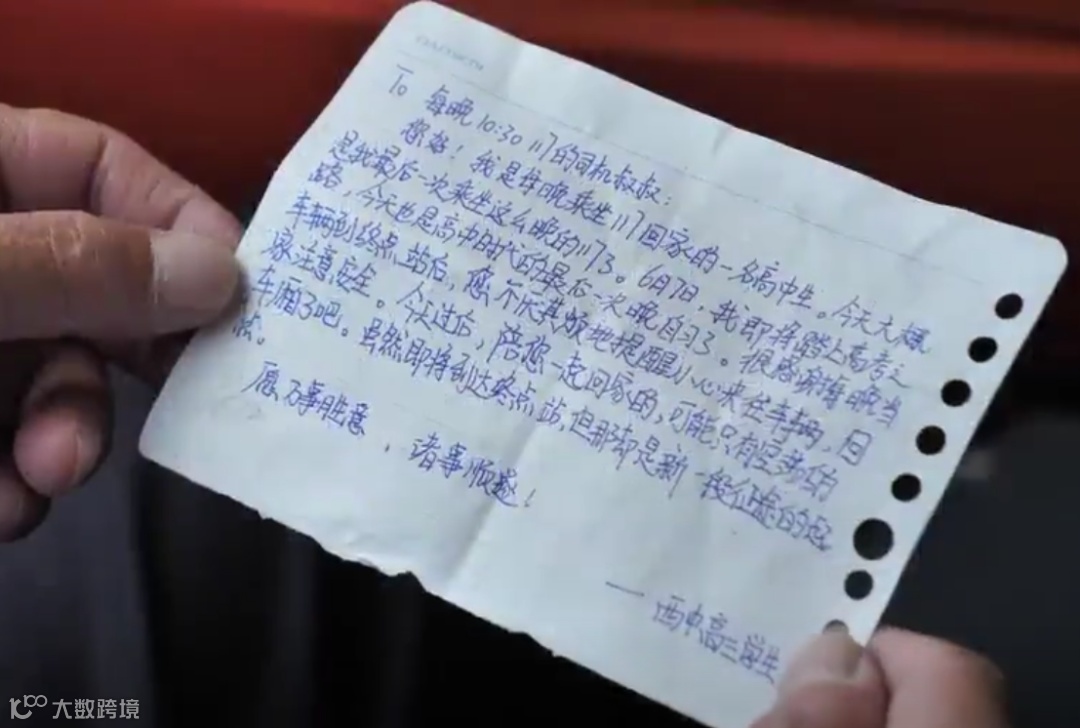 To 每晚10:30 117的司机叔叔:
您好!我是每晚乘坐117回家的一名高中生。今天大概
是我最后一次乘坐这么晚的117了。6月7日,我即将踏上高考之
路,今天也是高中时代的最后一次晚自习了。很感谢每晚当
车辆到终点站后,您不厌其烦地提醒小心来往车辆,回
家注意安全。今天过后,陪您一起回家的,可能只有空荡的
车厢了吧。虽然即将到达终点站,但那却是新一段征途的起
点。
愿万事胜意,诸事顺遂!
——西中高三学生
大数跨境